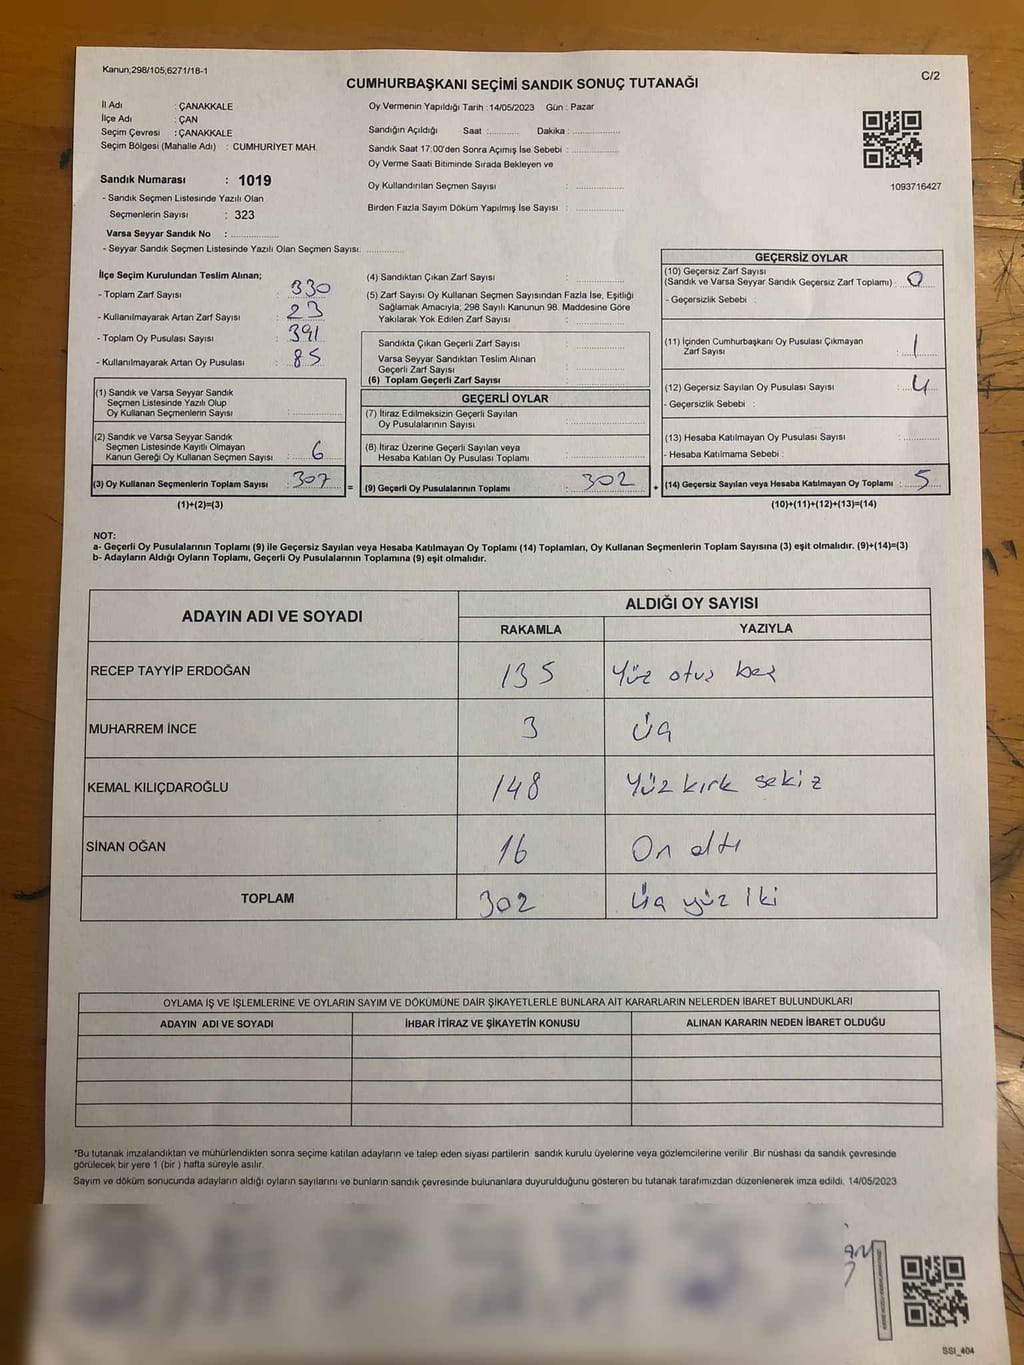 Kanun;298/105,6271/18-1
C/2
CUMHURBAŞKANI SEÇİMİ SANDIK SONUÇ TUTANAĞI
İl Adı : ÇANAKKALE
İlçe Adı : ÇAN
Seçim Çevresi : ÇANAKKALE
Seçim Bölgesi (Mahalle Adı) : CUMHURİYET MAH.
Oy Vermenin Yapıldığı Tarih : 14/05/2023 Gün : Pazar
Sandığın Açıldığı Saat :........... Dakika :................
Sandık Saat 17:00'den Sonra Açımış İse Sebebi :................
Oy Verme Saati Bitiminde Sırada Bekleyen ve
Oy Kullandırılan Seçmen Sayısı :................
Birden Fazla Sayım Döküm Yapılmış İse Sayısı :................
1093716427
Sandık Numarası : 1019
- Sandık Seçmen Listesinde Yazılı Olan
Seçmenlerin Sayısı : 323
Varsa Seyyar Sandık No :................
- Seyyar Sandık Seçmen Listesinde Yazılı Olan Seçmen Sayısı: ............
İlçe Seçim Kurulundan Teslim Alınan;
- Toplam Zarf Sayısı : 330
- Kullanılmayarak Artan Zarf Sayısı : 23
- Toplam Oy Pusulası Sayısı : 391
- Kullanılmayarak Artan Oy Pusulası : 85
(1) Sandık ve Varsa Seyyar Sandık
Seçmen Listesinde Yazılı Olup
Oy Kullanan Seçmenlerin Sayısı :................
(2) Sandık ve Varsa Seyyar Sandık
Seçmen Listesinde Kayıtlı Olmayan
Kanun Gereği Oy Kullanan Seçmen Sayısı : 6
(3) Oy Kullanan Seçmenlerin Toplam Sayısı : 307 =
(1)+(2)=(3)
(4) Sandıktan Çıkan Zarf Sayısı :................
(5) Zarf Sayısı Oy Kullanan Seçmen Sayısından Fazla İse, Eşitliği
Sağlamak Amacıyla; 298 Sayılı Kanunun 98. Maddesine Göre
Yakılarak Yok Edilen Zarf Sayısı :................
Sandıkta Çıkan Geçerli Zarf Sayısı :................
Varsa Seyyar Sandıktan Teslim Alınan
Geçerli Zarf Sayısı :................
(6) Toplam Geçerli Zarf Sayısı :................
GEÇERLİ OYLAR
(7) İtiraz Edilmeksizin Geçerli Sayılan
Oy Pusulalarının Sayısı :................
(8) İtiraz Üzerine Geçerli Sayılan veya
Hesaba Katılan Oy Pusulası Toplamı :................
(9) Geçerli Oy Pusulalarının Toplamı : 302 +
GEÇERSİZ OYLAR
(10) Geçersiz Zarf Sayısı
(Sandık ve Varsa Seyyar Sandık Geçersiz Zarf Toplamı) : 0
- Geçersizlik Sebebi :
(11) İçinden Cumhurbaşkanı Oy Pusulası Çıkmayan
Zarf Sayısı : 1
(12) Geçersiz Sayılan Oy Pusulası Sayısı : 4
- Geçersizlik Sebebi :
(13) Hesaba Katılmayan Oy Pusulası Sayısı :............
- Hesaba Katılmama Sebebi :
(14) Geçersiz Sayılan veya Hesaba Katılmayan Oy Toplamı : 5
(10)+(11)+(12)+(13)=(14)
NOT:
a- Geçerli Oy Pusulalarının Toplamı (9) ile Geçersiz Sayılan veya Hesaba Katılmayan Oy Toplamı (14) Toplamları, Oy Kullanan Seçmenlerin Toplam Sayısına (3) eşit olmalıdır. (9)+(14)=(3)
b- Adayların Aldığı Oyların Toplamı, Geçerli Oy Pusulalarının Toplamına (9) eşit olmalıdır.
ADAYIN ADI VE SOYADI ALDIĞI OY SAYISI
RAKAMLA YAZIYLA
RECEP TAYYİP ERDOĞAN 135 Yüz otuz beş
MUHARREM İNCE 3 Üç
KEMAL KILIÇDAROĞLU 148 Yüz kırk sekiz
SİNAN OĞAN 16 On altı
TOPLAM 302 Üç yüz iki
OYLAMA İŞ VE İŞLEMLERİNE VE OYLARIN SAYIM VE DÖKÜMÜNE DAİR ŞİKAYETLERLE BUNLARA AİT KARARLARIN NELERDEN İBARET BULUNDUKLARI
ADAYIN ADI VE SOYADI İHBAR İTİRAZ VE ŞİKAYETİN KONUSU ALINAN KARARIN NEDEN İBARET OLDUĞU
*Bu tutanak imzalandıktan ve mühürlendikten sonra seçime katılan adayların ve talep eden siyasi partilerin sandık kurulu üyelerine veya gözlemcilerine verilir .Bir nüshası da sandık çevresinde
görülecek bir yere 1 (bir ) hafta süreyle asılır.
Sayım ve döküm sonucunda adayların aldığı oyların sayılarını ve bunların sandık çevresinde bulunanlara duyurulduğunu gösteren bu tutanak tarafımızdan düzenlenerek imza edildi. 14/05/2023
SSI_404